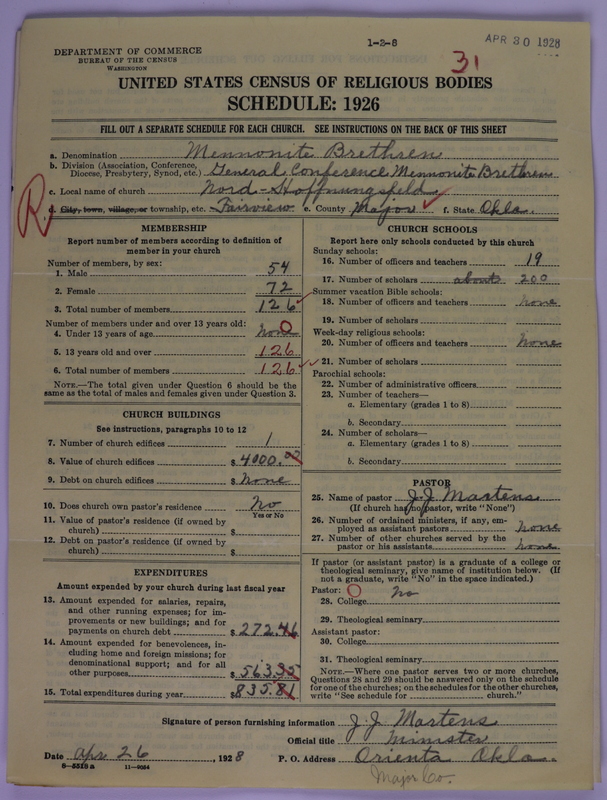 1-2-8
APR 30 1928
DEPARTMENT OF COMMERCE
BUREAU OF THE CENSUS
WASHINGTON
31
UNITED STATES CENSUS OF RELIGIOUS BODIES
SCHEDULE: 1926
FILL OUT A SEPARATE SCHEDULE FOR EACH CHURCH. SEE INSTRUCTIONS ON THE BACK OF THIS SHEET
a. Denomination Mennonite Brethren
b. Division (Association, Conference, Diocese, Presbytery, Synod, etc.) General Conference Mennonite Brethren
c. Local name of church Nord-Hoffnungsfeld
R
d. City, town, village, or township, etc. Fairview e. County Major f. State Okla.
MEMBERSHIP
Report number of members according to definition of
member in your church
Number of members, by sex:
1. Male 54
2. Female 72
3. Total number of members 126
Number of members under and over 13 years old:
4. Under 13 years of age None 0
5. 13 years old and over 126
6. Total number of members 126
NOTE.—The total given under Question 6 should be the
same as the total of males and females given under Question 3.
CHURCH BUILDINGS
See instructions, paragraphs 10 to 12
7. Number of church edifices 1
8. Value of church edifices $ 4000.00
9. Debt on church edifices $ None
10. Does church own pastor's residence No
Yes or No
11. Value of pastor's residence (if owned by
church) $
12. Debt on pastor's residence (if owned by
church) $
EXPENDITURES
Amount expended by your church during last fiscal year
13. Amount expended for salaries, repairs,
and other running expenses; for im-
provements or new buildings; and for
payments on church debt $ 272.46
14. Amount expended for benevolences, in-
cluding home and foreign missions; for
denominational support; and for all
other purposes $ 563.35
15. Total expenditures during year $ 835.81
CHURCH SCHOOLS
Report here only schools conducted by this church
Sunday schools:
16. Number of officers and teachers 19
17. Number of scholars about 200
Summer vacation Bible schools:
18. Number of officers and teachers none
19. Number of scholars
Week-day religious schools:
20. Number of officers and teachers none
21. Number of scholars
Parochial schools:
22. Number of administrative officers
23. Number of teachers—
a. Elementary (grades 1 to 8)
b. Secondary
24. Number of scholars—
a. Elementary (grades 1 to 8)
b. Secondary
PASTOR
25. Name of pastor J. J. Martens
(If church has no pastor, write "None")
26. Number of ordained ministers, if any, em-
ployed as assistant pastors none
27. Number of other churches served by the
pastor or his assistants none
If pastor (or assistant pastor) is a graduate of a college or
theological seminary, give name of institution below. (If
not a graduate, write "No" in the space indicated.)
Pastor: 0 No
28. College
29. Theological seminary
Assistant pastor:
30. College
31. Theological seminary
NOTE.—Where one pastor serves two or more churches,
Questions 28 and 29 should be answered only on the schedule
for one of the churches; on the schedules for the other churches,
write "See schedule for church."
Signature of person furnishing information J. J. Martens
Official title Minister
Date Apr 26, 1928 P. O. Address Orienta Okla.
8—5518 a 11—9034
Major Co.